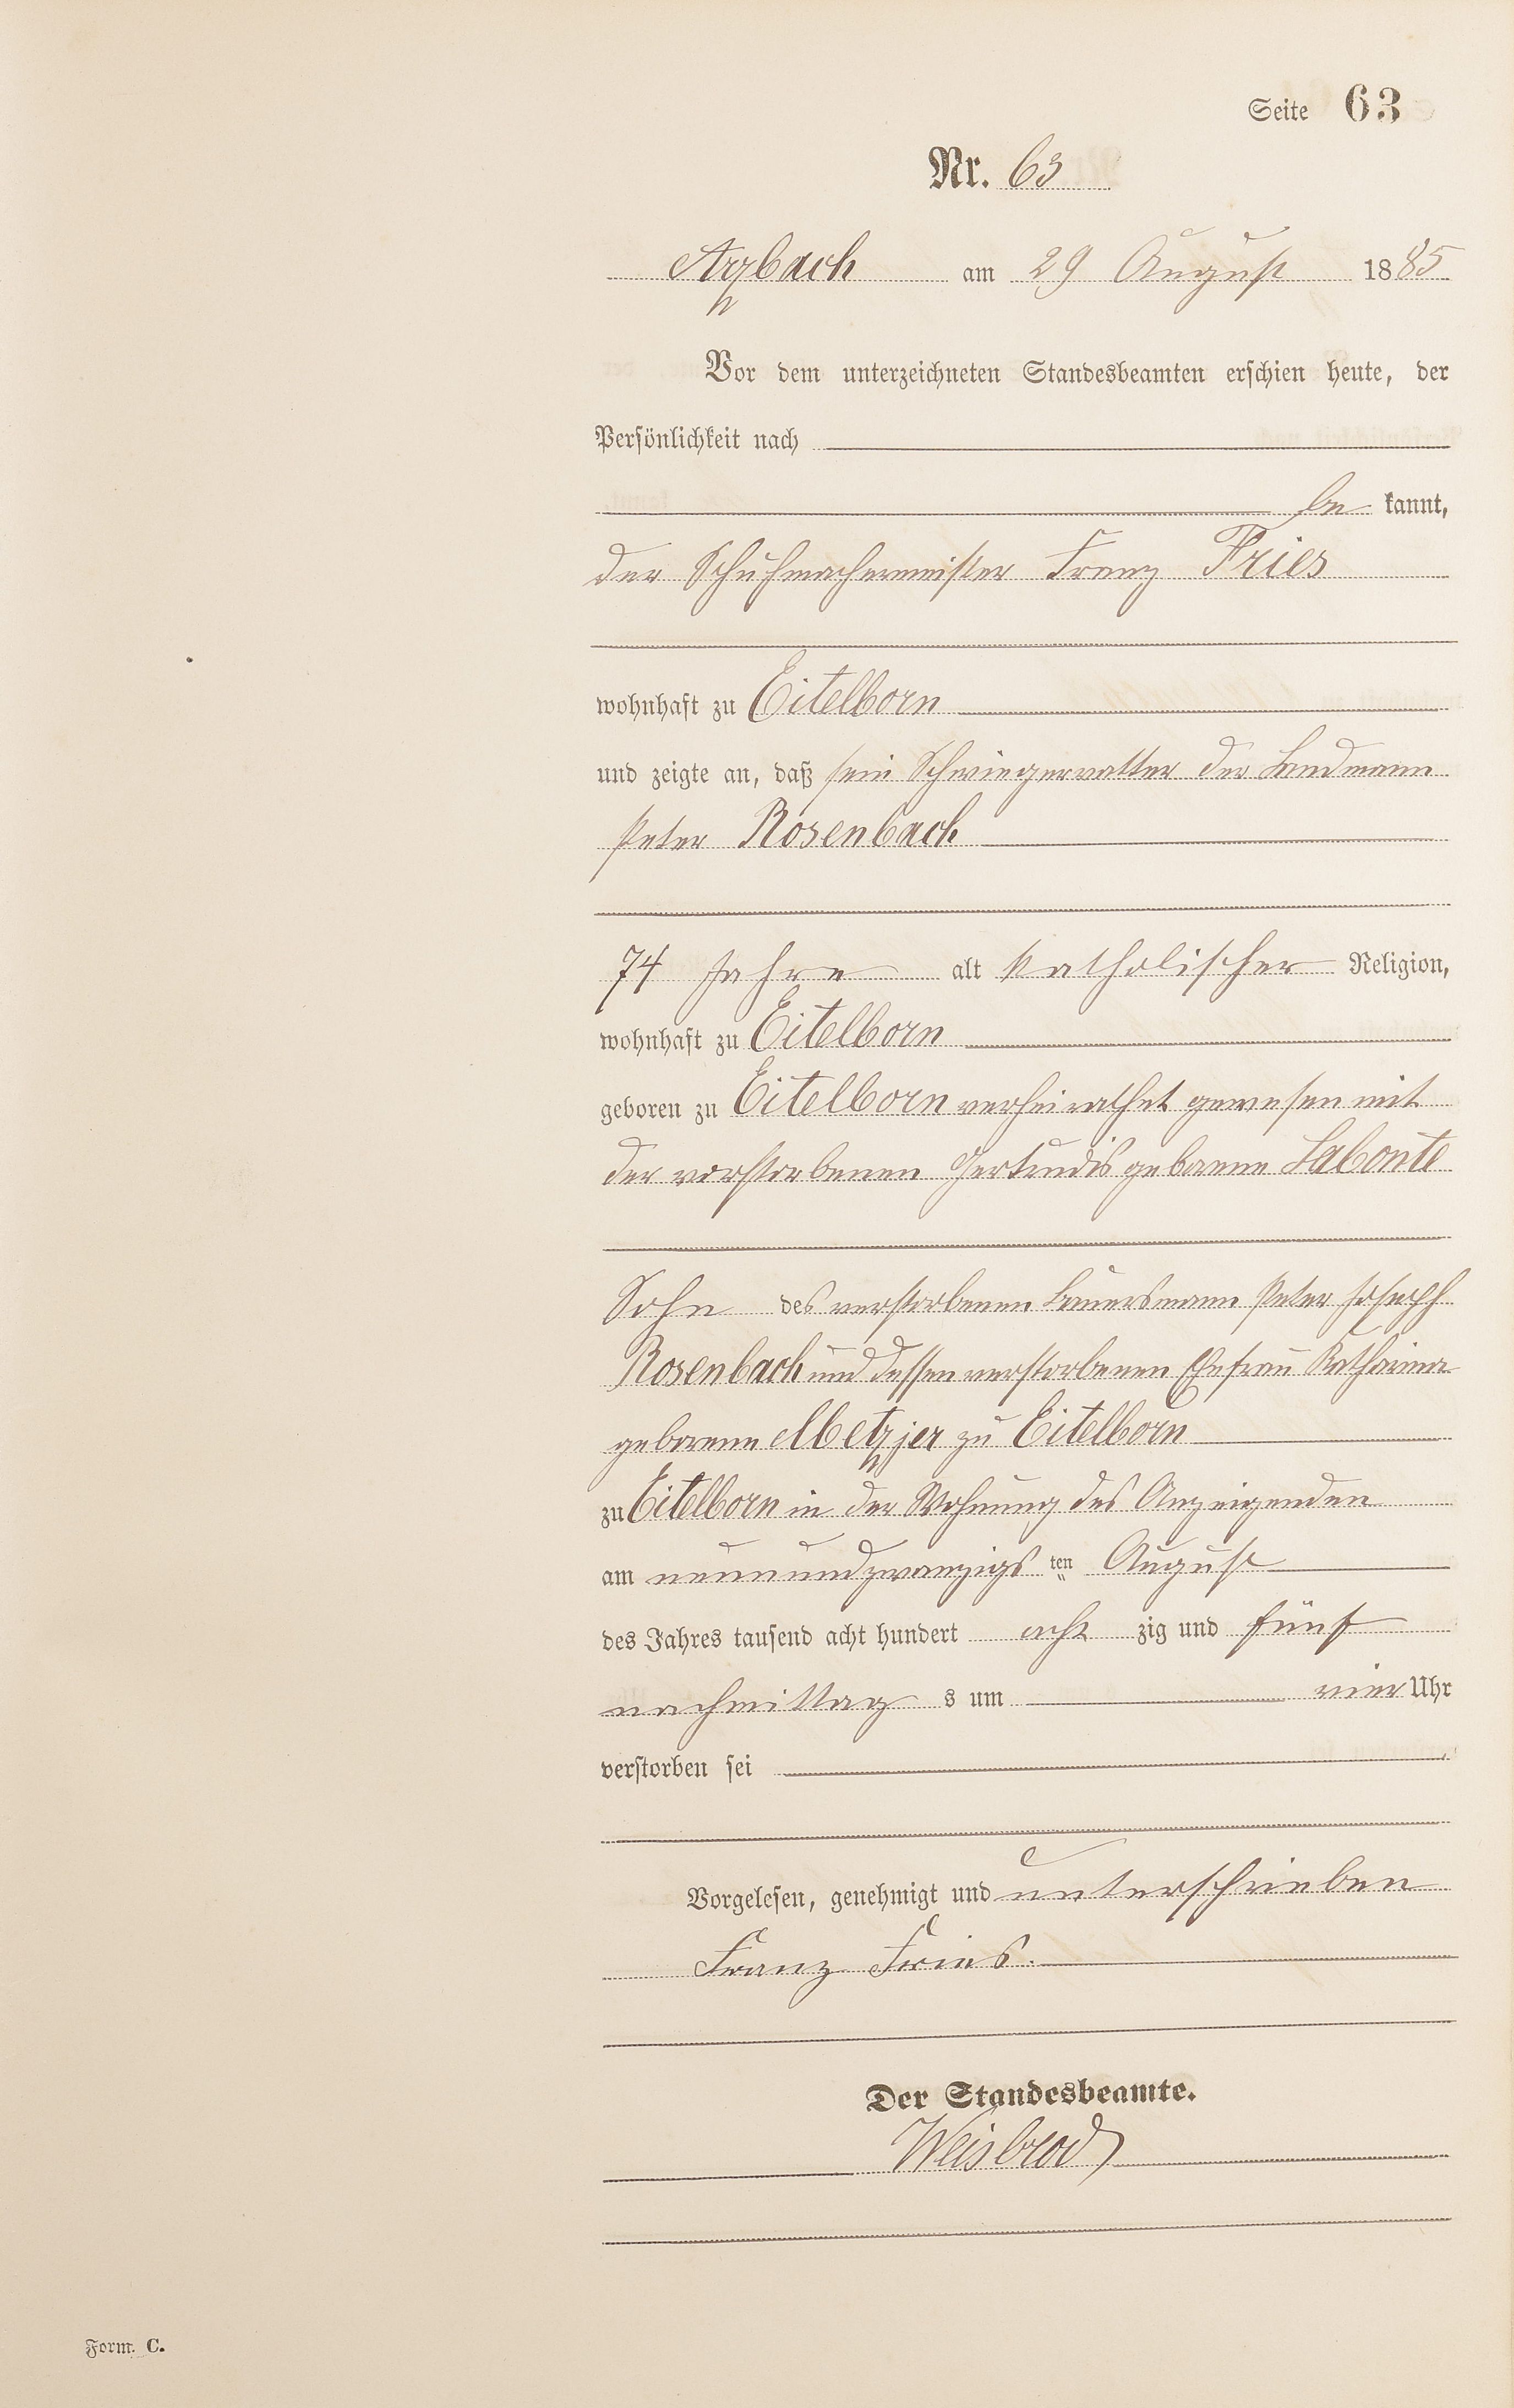 Seite 63
Nr. 63
Arzbach am 29 August 1885
Vor dem unterzeichneten Standesbeamten erschien heute, der
Persönlichkeit nach
be kannt,
der Schuhmachermeister Franz Fries
wohnhaft zu Eitelborn
und zeigte an, daß sein Schwiegervatter der Landmann
Peter Rosenbach
74 Jahre alt katholischer Religion,
wohnhaft zu Eitelborn
geboren zu Eitelborn verheirathet gewesen mit
der verstorbenen Gertrudis geborene Labonte
Sohn des verstorbenen Bauersmann Peter Joseph
Rosenbach und dessen verstorbenen Ehefrau Katharina
geborene Metzjer zu Eitelborn
zu Eitelborn in der Wohnung des Anzeigenden
am neunundzwanzigs ten August
des Jahres tausend acht hundert acht zig und fünf
nachmittag s um vier Uhr
verstorben sei
Vorgelesen, genehmigt und unterschrieben
Franz Fries.
Der Standesbeamte.
Weisbrod
Form. C.